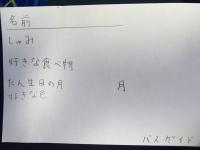 名前
しゅみ
好きな食べ物
たん生日の月 月
好きな色
バスガイド